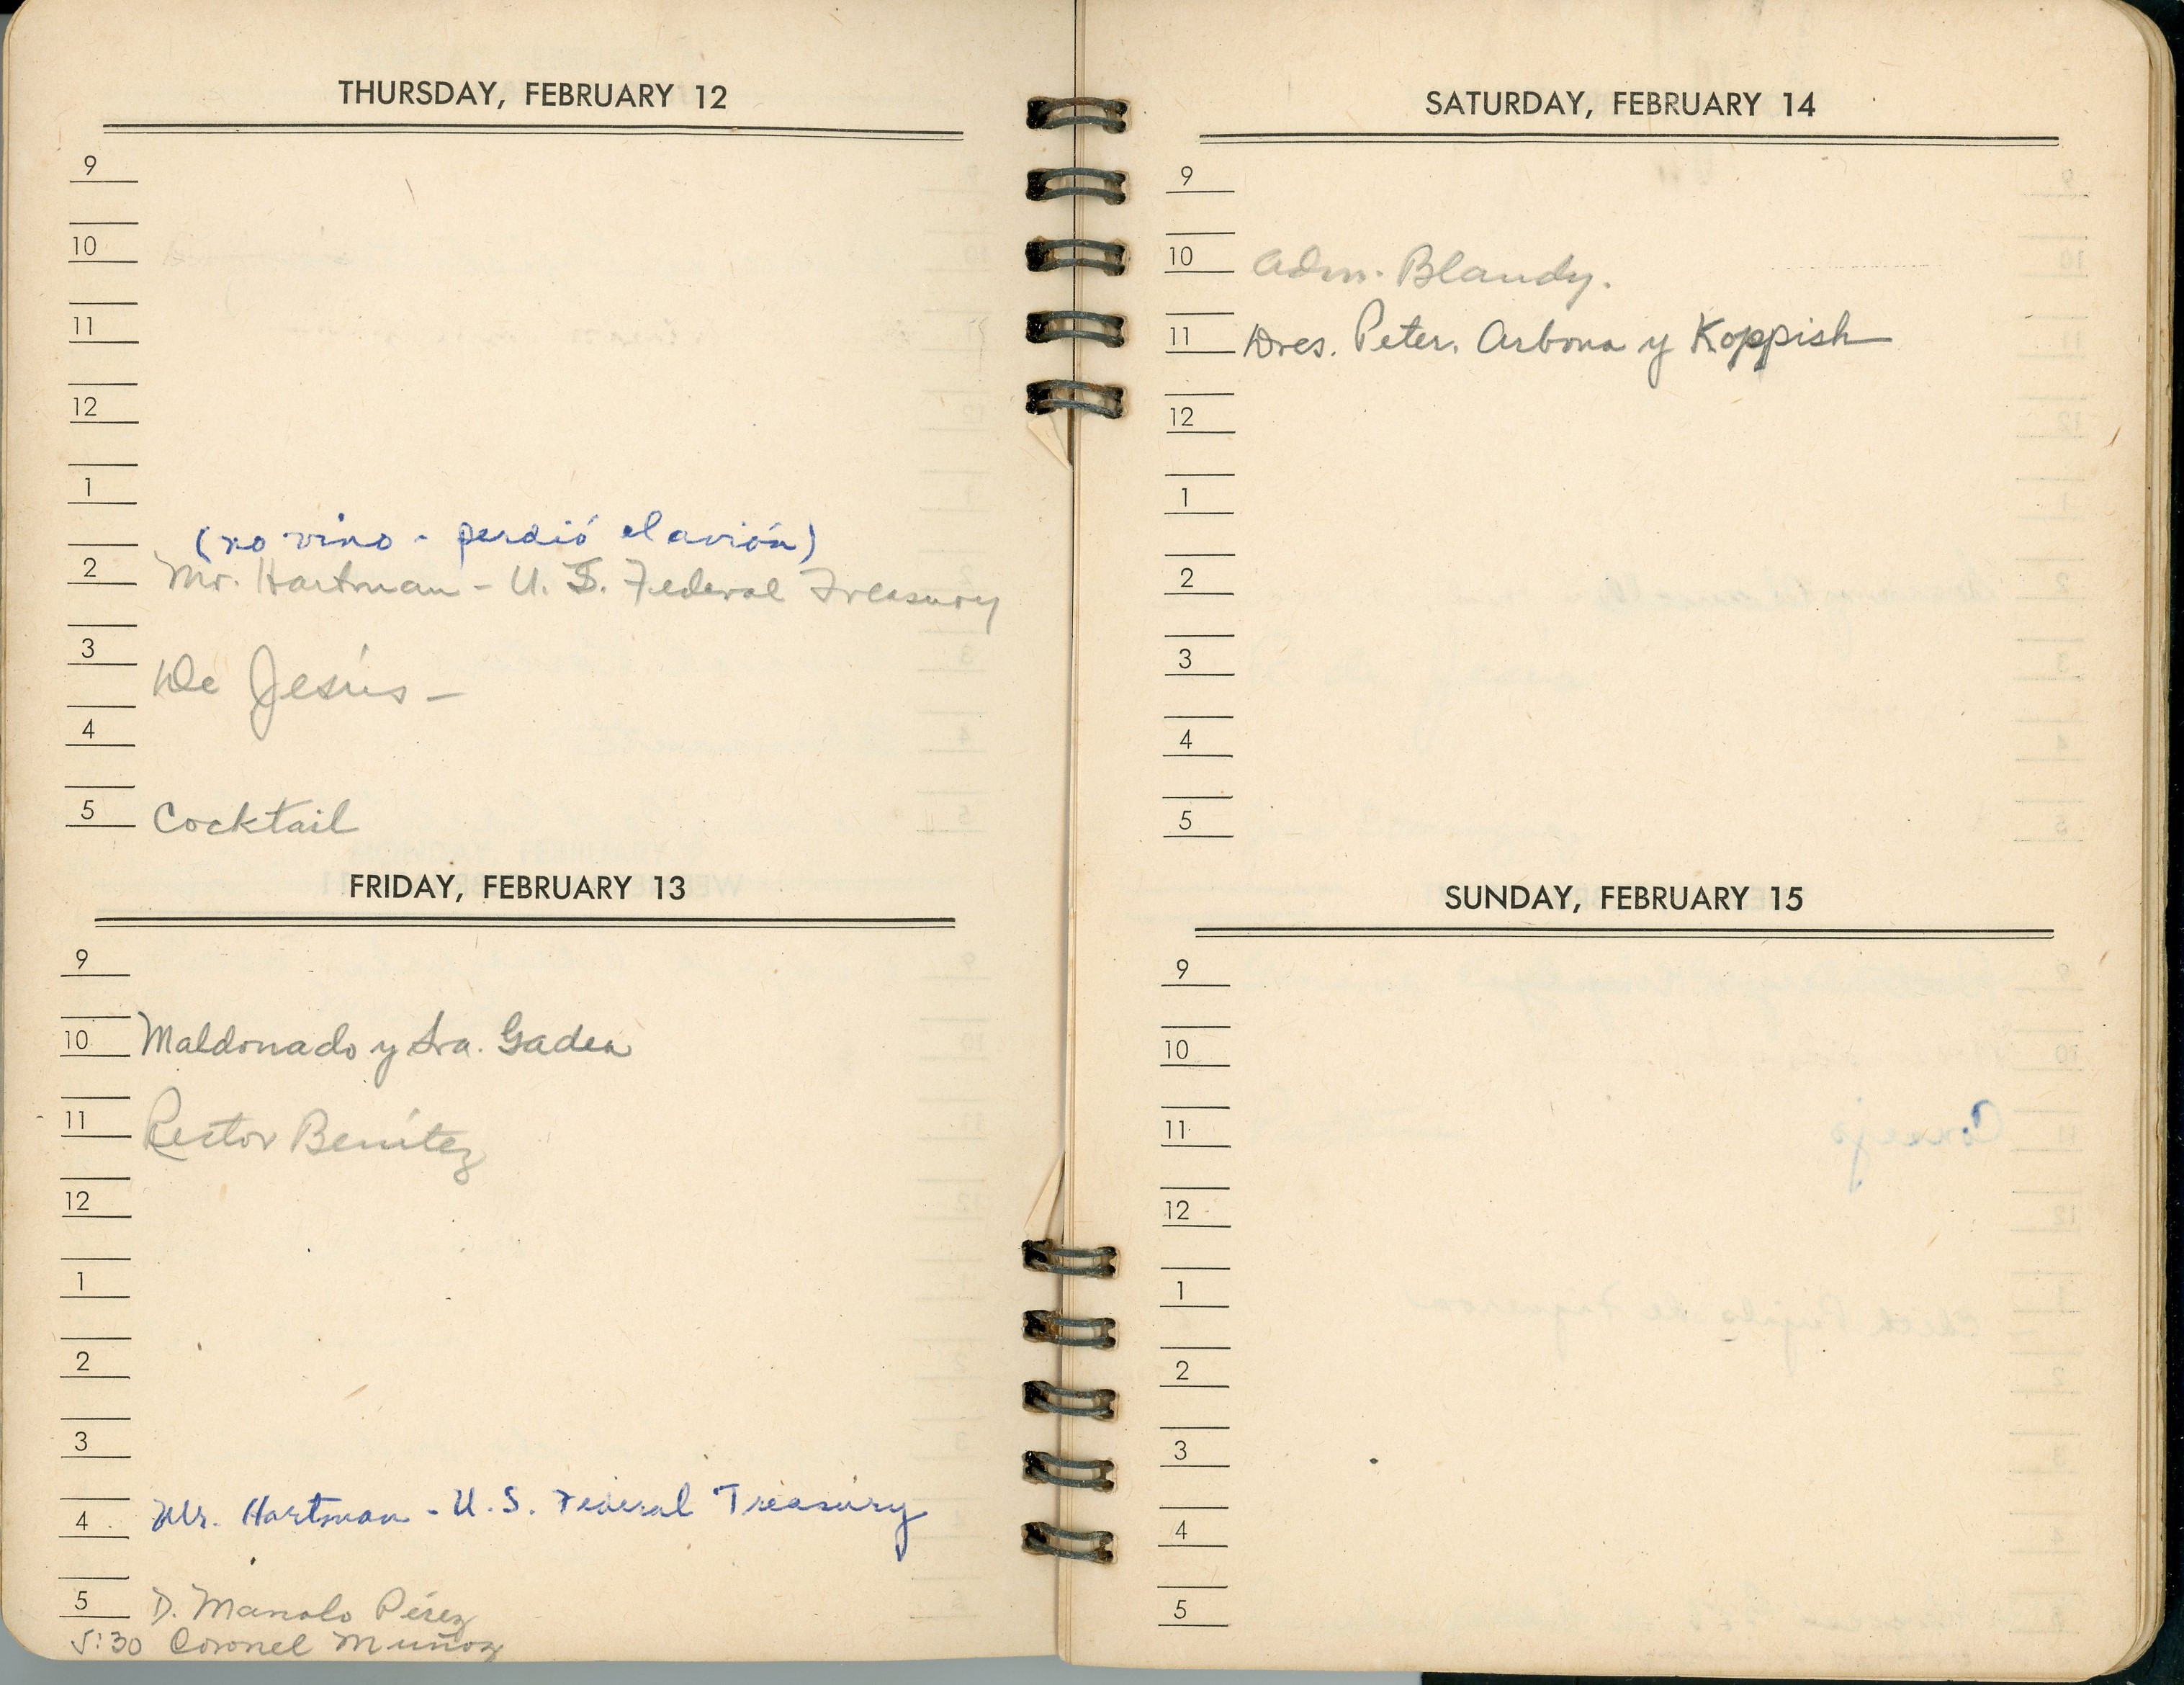 THURSDAY, FEBRUARY 12
9
10
11
12
1
(no vino - perdió el avión)
2 Mr. Hartman - U. S. Federal Treasury
3 De Jesús -
4
5 Cocktail
FRIDAY, FEBRUARY 13
9
10 Maldonado y Sra. Gadea
11 Rector Benítez
12
1
2
3
4 Mr. Hartman - U. S. Federal Treasury
5 D. Manolo Pérez
5:30 Coronel Muñoz
SATURDAY, FEBRUARY 14
9
10 Adm. Blandy.
11 Dres. Peter, Arbona y Koppish
12
1
2
3
4
5
SUNDAY, FEBRUARY 15
9
10
11
12
1
2
3
4
5